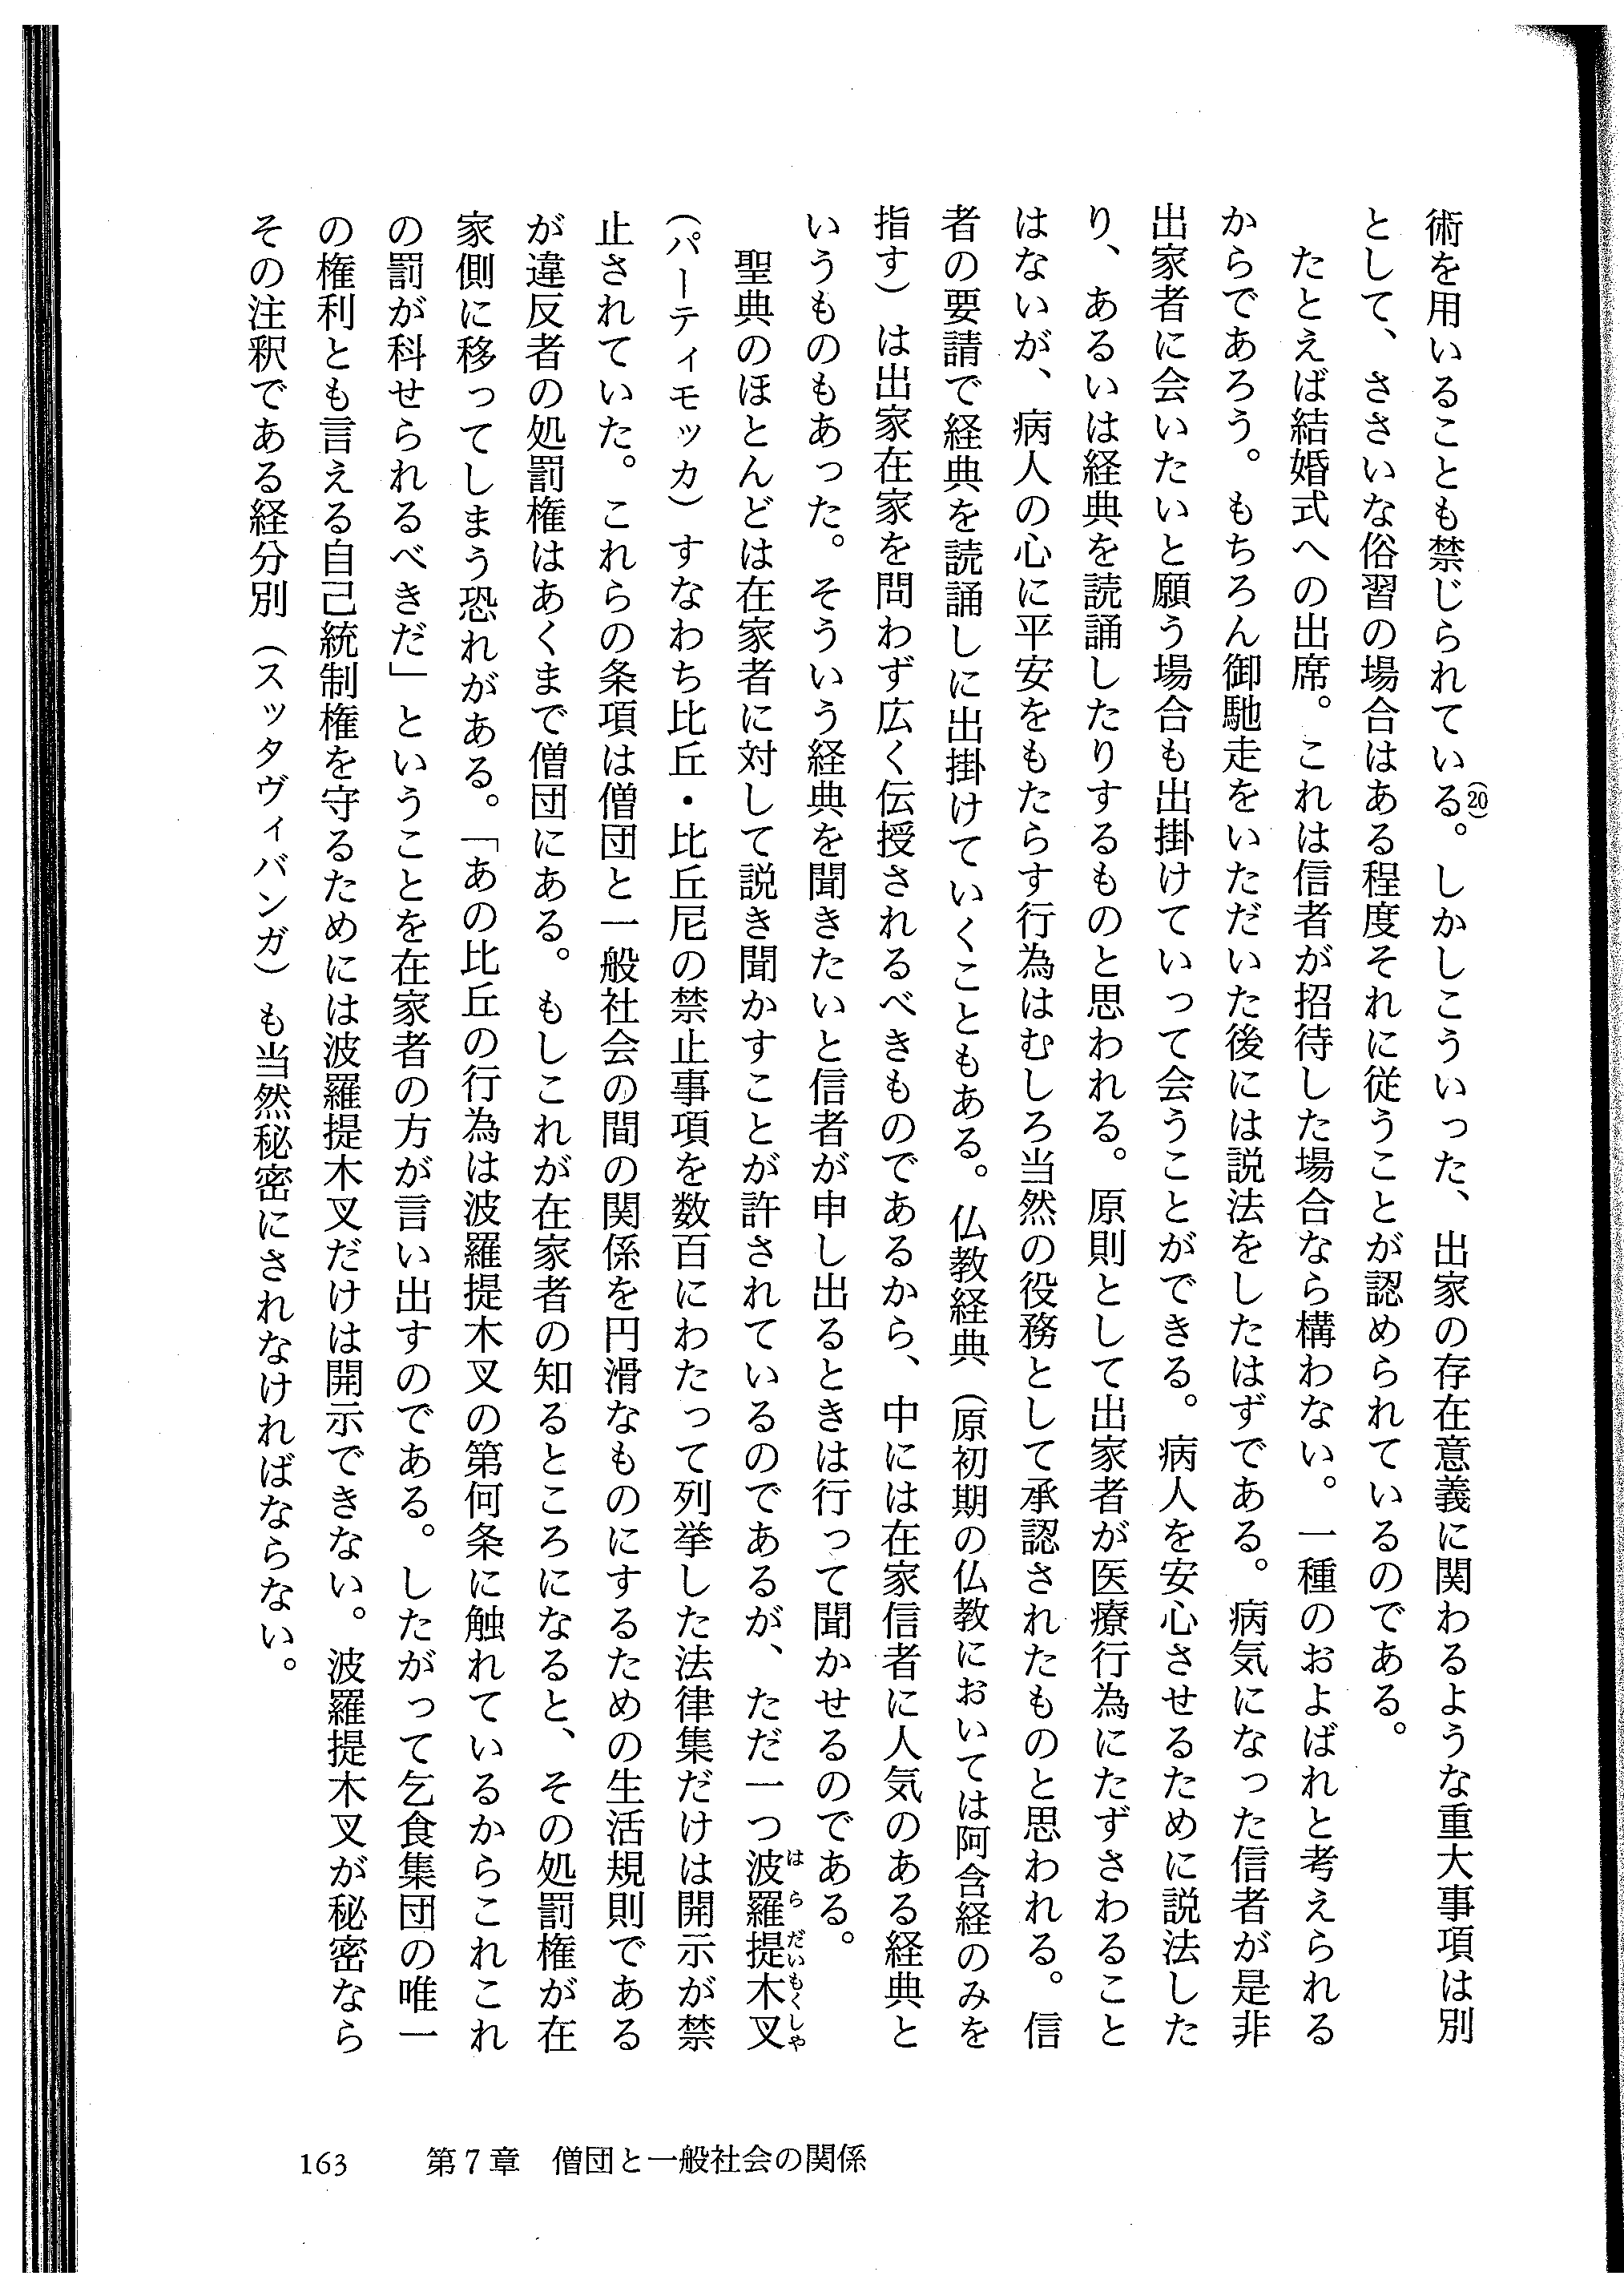 術を用いることも禁じられている。(20)しかしこういった、出家の存在意義に関わるような重大事項は別
として、ささいな俗習の場合はある程度それに従うことが認められているのである。
たとえば結婚式への出席。これは信者が招待した場合なら構わない。一種のおよばれと考えられる
からであろう。もちろん御馳走をいただいた後には説法をしたはずである。病気になった信者が是非
出家者に会いたいと願う場合も出掛けていって会うことができる。病人を安心させるために説法した
り、あるいは経典を読誦したりするものと思われる。原則として出家者が医療行為にたずさわること
はないが、病人の心に平安をもたらす行為はむしろ当然の役務として承認されたものと思われる。信
者の要請で経典を読誦しに出掛けていくこともある。仏教経典（原初期の仏教においては阿含経のみを
指す）は出家在家を問わず広く伝授されるべきものであるから、中には在家信者に人気のある経典と
いうものもあった。そういう経典を聞きたいと信者が申し出るときは行って聞かせるのである。
聖典のほとんどは在家者に対して説き聞かすことが許されているのであるが、ただ一つ波羅提木叉
はらだいもくしゃ
（パーティモッカ）すなわち比丘・比丘尼の禁止事項を数百にわたって列挙した法律集だけは開示が禁
止されていた。これらの条項は僧団と一般社会の間の関係を円滑なものにするための生活規則である
が違反者の処罰権はあくまで僧団にある。もしこれが在家者の知るところになると、その処罰権が在
家側に移ってしまう恐れがある。「あの比丘の行為は波羅提木叉の第何条に触れているからこれこれ
の罰が科せられるべきだ」ということを在家者の方が言い出すのである。したがって乞食集団の唯一
の権利とも言える自己統制権を守るためには波羅提木叉だけは開示できない。波羅提木叉が秘密なら
その注釈である経分別（スッタヴィバンガ）も当然秘密にされなければならない。
163 第7章 僧団と一般社会の関係